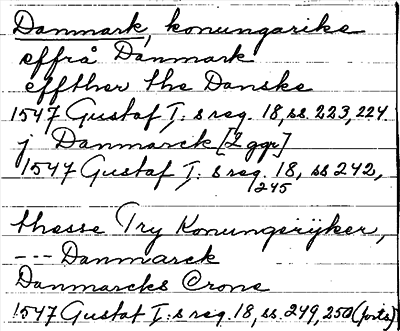 Danmark, konungarike
effrå Danmark
effther the Danske
1547 Gustaf I:s reg. 18, ss. 223, 224
j Danmarck [2 ggr]
1547 Gustaf I:s reg. 18, ss 242,
245
thesse Try Konungsrijker,
--- Danmarck
Danmarcks Crone
1547 Gustaf I:s reg. 18, ss. 249, 250 (forts)